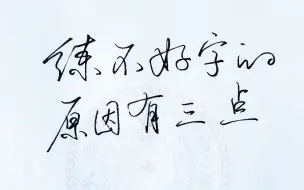 练不好字的
原因有三点